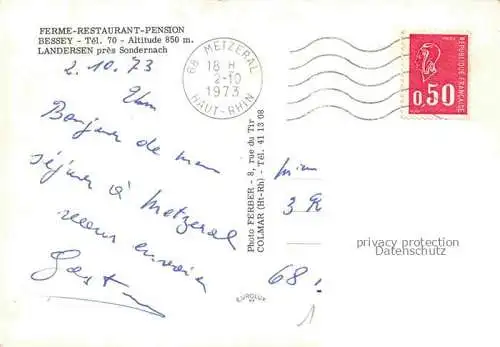 FERME-RESTAURANT-PENSION
BESSEY - Tél. 70 - Altitude 850 m.
LANDERSEN près Sondernach
2.10.73
Bonjour de mon
séjour à Metzeral
Photo FERBER - 8, rue du Tir
COLMAR (Ht-Rh) - Tél. 41 13 08
68 METZERAL
18 H
2-10
1973
HAUT-RHIN
RÉPUBLIQUE FRANÇAISE
0,50
3 R
68
privacy protection
Datenschutz
EUROLUX
1